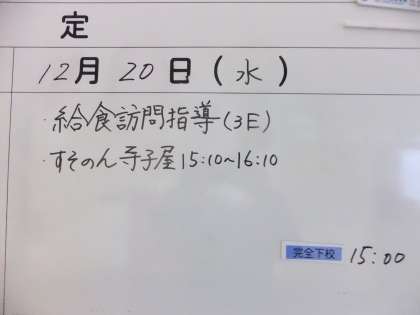 定
12月 20日(水)
・給食訪問指導(3E)
・すそのん寺子屋 15:10~16:10
完全下校 15:00